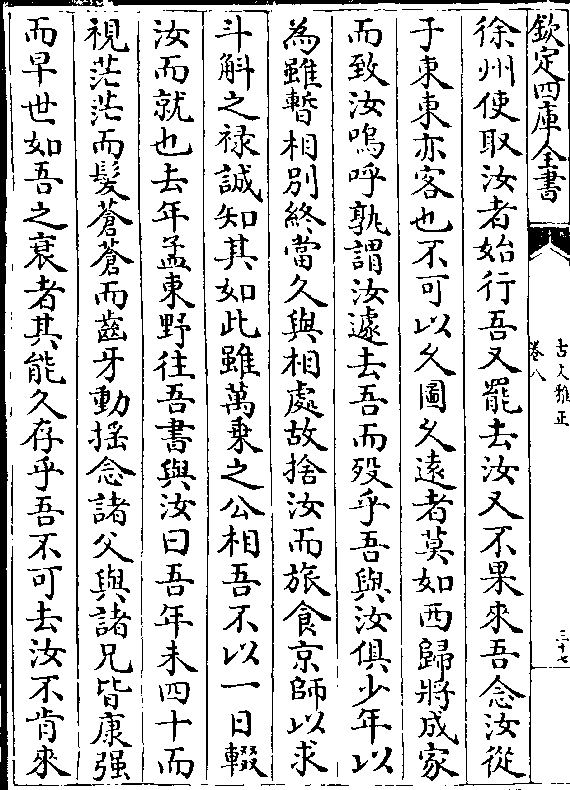 欽定四庫全書
古文雅正
卷八
三十七
徐州使取汝者始行吾又罷去汝又不果來吾念汝從
于東東亦客也不可以乆圖乆逺者莫如西歸將成家
而致汝嗚呼孰謂汝遽去吾而殁乎吾與汝俱少年以
為雖暫相别終當久與相處故捨汝而旅食京師以求
斗斛之禄誠知其如此雖萬乗之公相吾不以一日輟
汝而就也去年孟東野往吾書與汝曰吾年未四十而
視茫茫而髮蒼蒼而齒牙動揺念諸父與諸兄皆康强
而早世如吾之衰者其能久存乎吾不可去汝不肯來